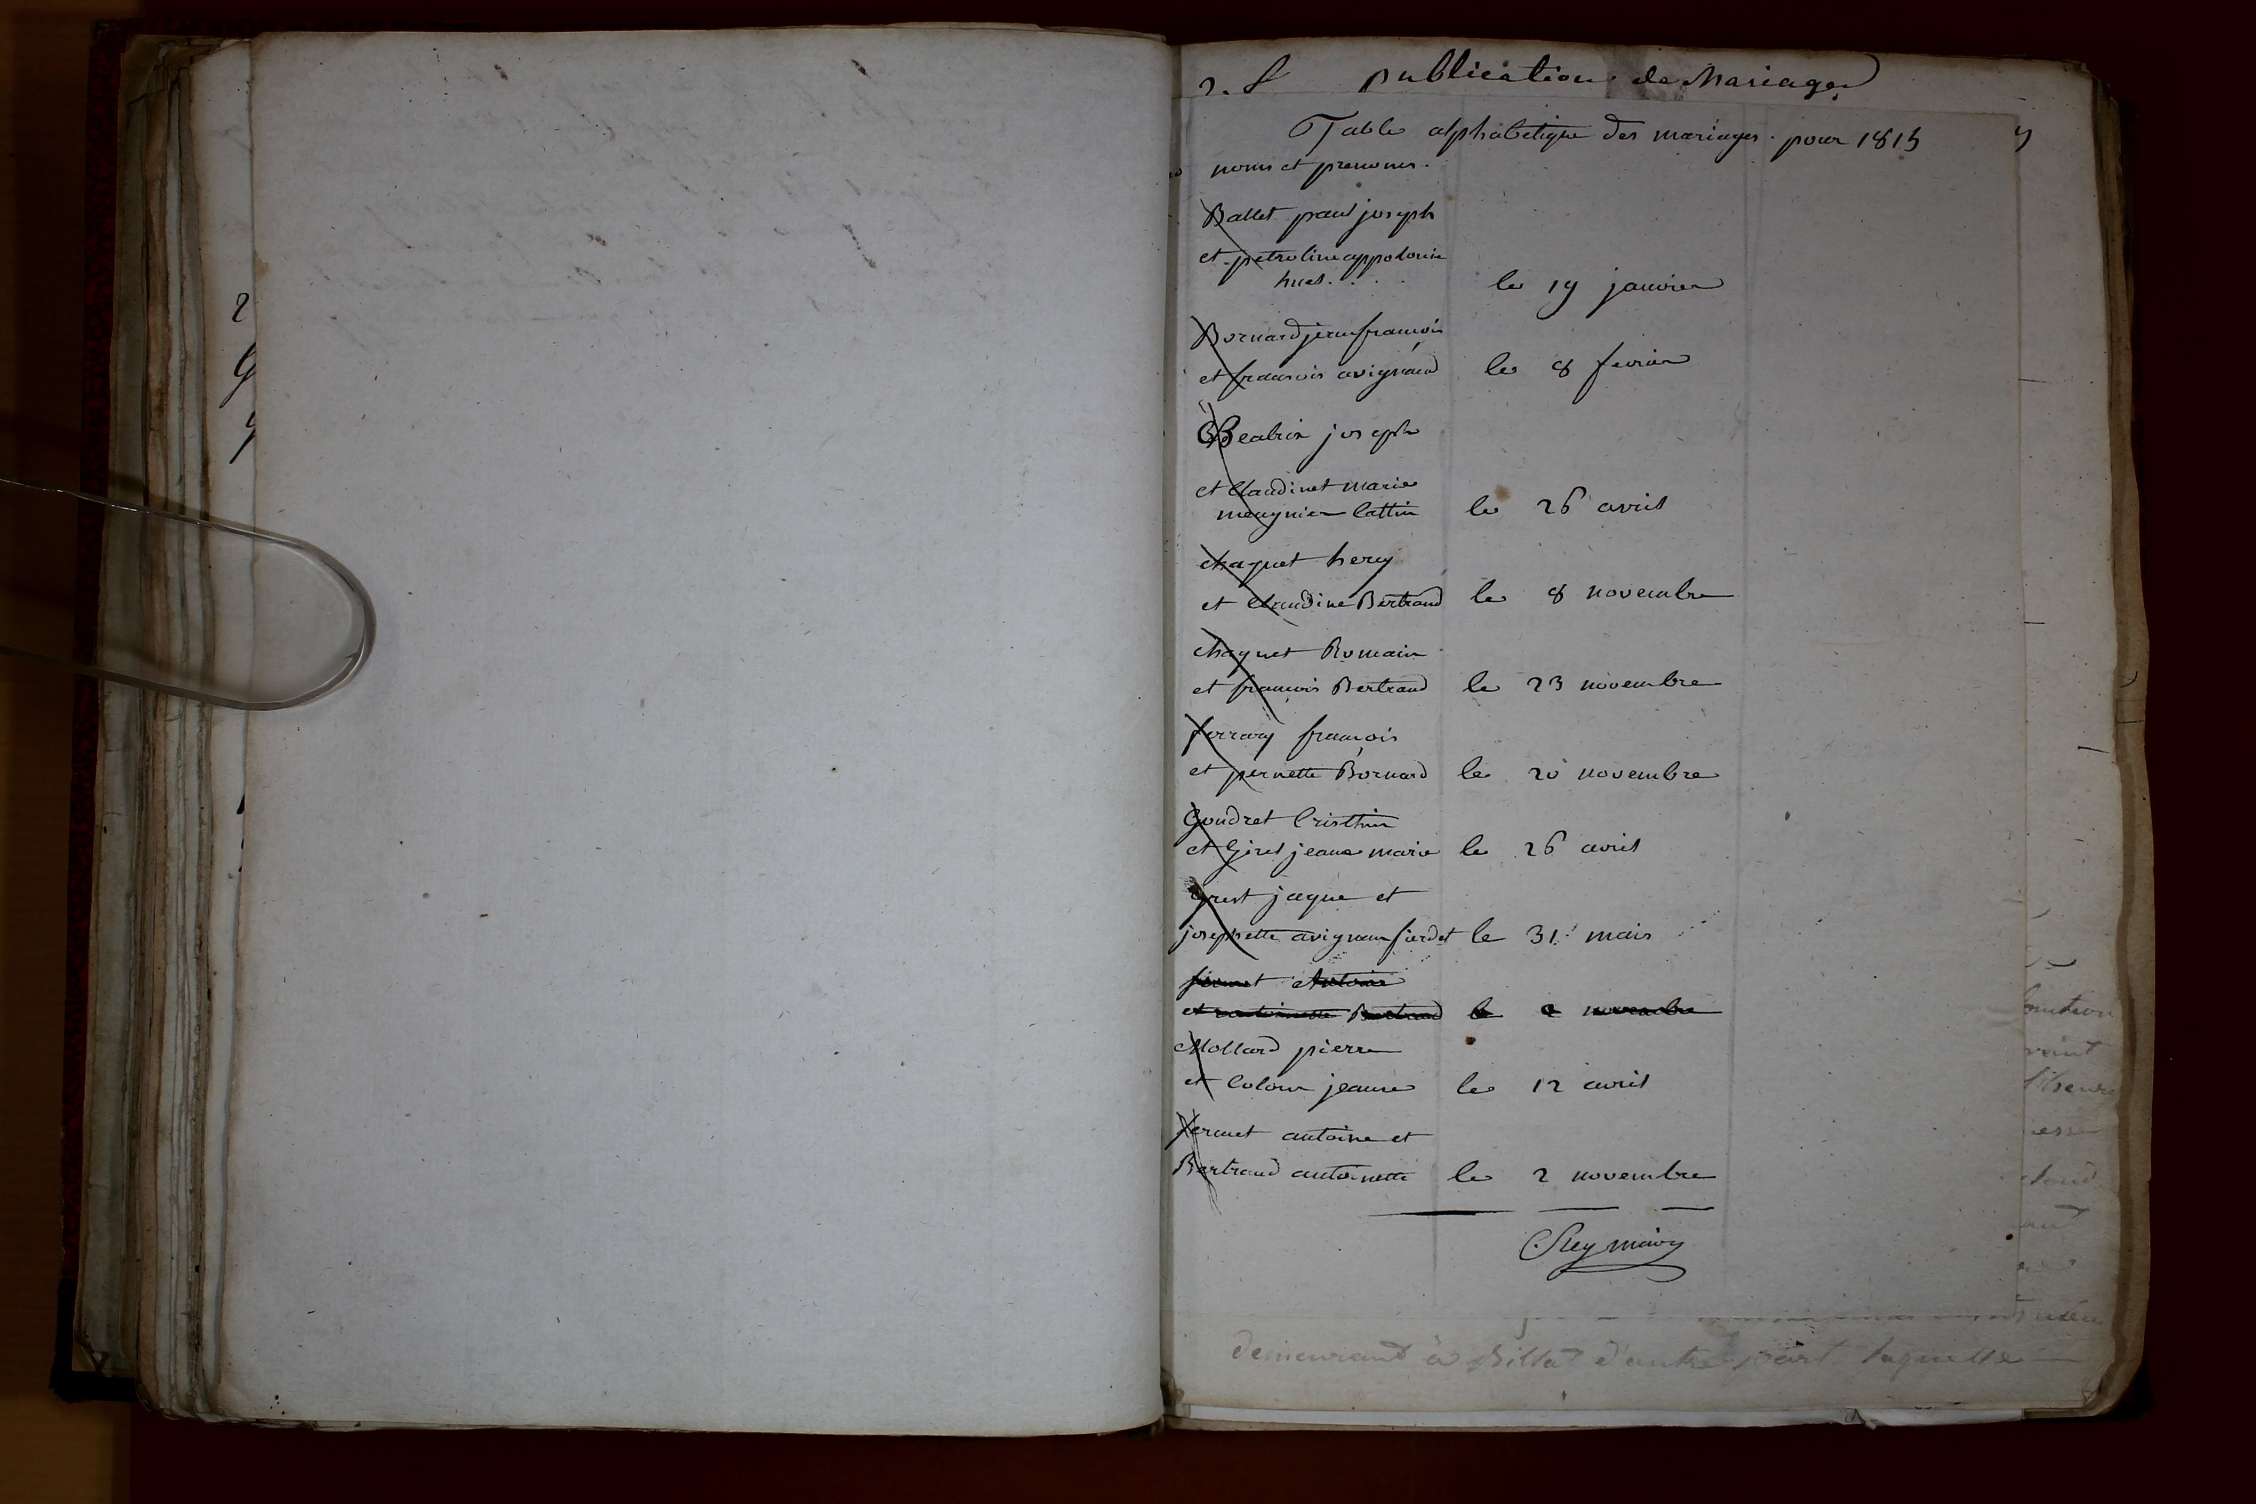 publication de Mariages
Table alphabetique des mariages pour 1815
noms et prenoms
Ballet paul joseph
et petroline appolonie
hues
le 19 janvier
Bornard jean françois
et françois avignand le 8 fevrier
Beatrix joseph
et Claudinet marie
meugnier Cattin le 26 avril
chaquet hery
et Claudine Bertrand le 8 novembre
chaquet Romain
et françois Bertrand le 23 novembre
ferrary françois
et pernette Bornard le 20 novembre
Goudret Cristhin
et Giret jeane marie le 26 avril
jaque et
josephette avignan le 31 mais
Antoine
et antoinette Bertrand le 2 novembre
Mollard pierre
et Colom jeanne le 12 avril
fermet antoine et
Bertrand antoinette le 2 novembre
Rey mairy
demeurant à Billat d'autre part laquelle